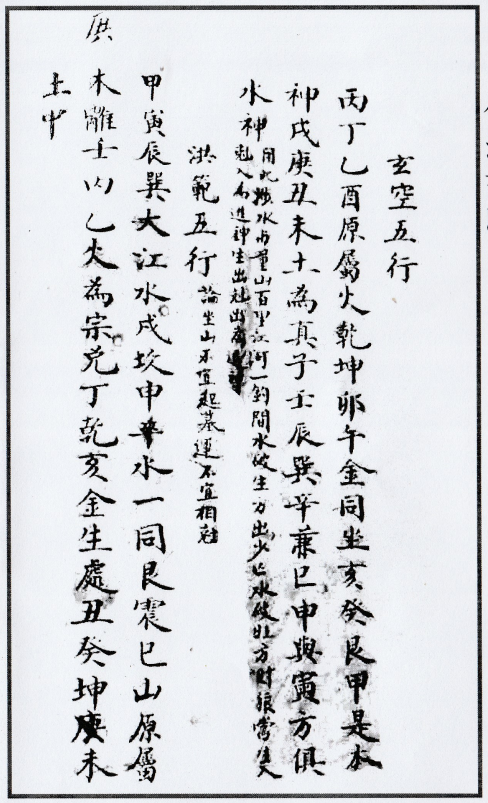 玄空五行
丙丁乙酉原屬火乾坤卯午金同坐亥癸艮甲是木
神戌庚丑未土為真子壬辰巽辛兼巳申與寅方俱
水神
用此撥水與量山百里江河一鈞間水破生方出少亡水破旺方財狼當
尅入為進神生出尅出
洪範五行
論坐山不宜起墓運不宜相尅
甲寅辰巽大江水戌坎申辛水一同艮震巳山原屬
木離壬丙乙火為宗兌丁乾亥金生處丑癸坤庚未
土中